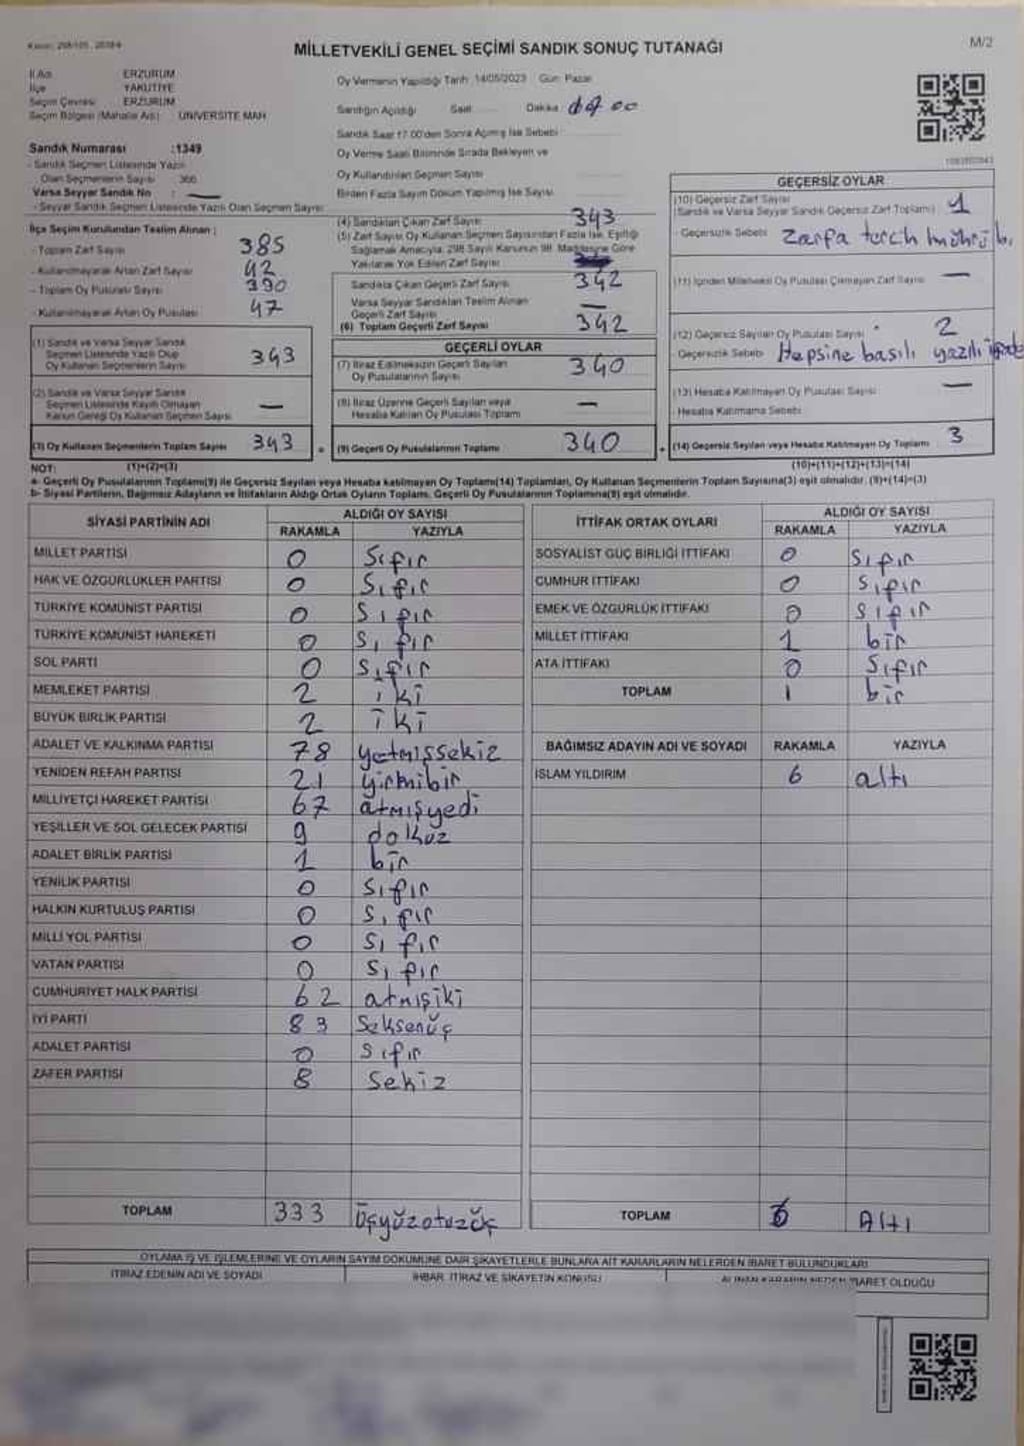 MİLLETVEKİLİ GENEL SEÇİMİ SANDIK SONUÇ TUTANAĞI
M/2
İl Adı ERZURUM
İlçe YAKUTİYE
Seçim Çevresi ERZURUM
Seçim Bölgesi (Mahalle Adı) : ÜNİVERSİTE MAH
Sandık Numarası :1349
- Sandık Seçmen Listesinde Yazılı
Olan Seçmenlerin Sayısı 366
Varsa Seyyar Sandık No : —
- Seyyar Sandık Seçmen Listesinde Yazılı Olan Seçmen Sayısı
İlçe Seçim Kurulundan Teslim Alınan ;
- Toplam Zarf Sayısı 385
- Kullanılmayarak Artan Zarf Sayısı 42
- Toplam Oy Pusulası Sayısı 390
- Kullanılmayarak Artan Oy Pusulası 47
(1) Sandık ve Varsa Seyyar Sandık
Seçmen Listesinde Yazılı Olup
Oy Kullanan Seçmenlerin Sayısı 343
(2) Sandık ve Varsa Seyyar Sandık
Seçmen Listesinde Kayıtlı Olmayan
Kanun Gereği Oy Kullanan Seçmen Sayısı —
(3) Oy Kullanan Seçmenlerin Toplam Sayısı 343
(1)+(2)=(3)
Oy Vermenin Yapıldığı Tarih: 14/05/2023 Gün: Pazar
Sandığın Açıldığı Saat Dakika 17 00
Sandık Saat 17.00'den Sonra Açılmış İse Sebebi
Oy Verme Saati Bitiminde Sırada Bekleyen ve
Oy Kullandırılan Seçmen Sayısı
Birden Fazla Sayım Döküm Yapılmış İse Sayısı
(4) Sandıktan Çıkan Zarf Sayısı 343
(5) Zarf Sayısı Oy Kullanan Seçmen Sayısından Fazla İse, Eşitliği
Sağlamak Amacıyla, 298 Sayılı Kanunun 98. Maddesine Göre
Yakılarak Yok Edilen Zarf Sayısı
Sandıkta Çıkan Geçerli Zarf Sayısı 342
Varsa Seyyar Sandıktan Teslim Alınan
Geçerli Zarf Sayısı —
(6) Toplam Geçerli Zarf Sayısı 342
GEÇERLİ OYLAR
(7) İtiraz Edilmeksizin Geçerli Sayılan
Oy Pusulalarının Sayısı 340
(8) İtiraz Üzerine Geçerli Sayılan veya
Hesaba Katılan Oy Pusulası Toplamı —
(9) Geçerli Oy Pusulalarının Toplamı 340
GEÇERSİZ OYLAR
(10) Geçersiz Zarf Sayısı
(Sandık ve Varsa Seyyar Sandık Geçersiz Zarf Toplamı) 1
- Geçersizlik Sebebi Zarfa tercih mührü b.
(11) İçinden Milletvekili Oy Pusulası Çıkmayan Zarf Sayısı —
(12) Geçersiz Sayılan Oy Pusulası Sayısı 2
- Geçersizlik Sebebi Hepsine basılı yazılı
(13) Hesaba Katılmayan Oy Pusulası Sayısı —
- Hesaba Katılmama Sebebi
(14) Geçersiz Sayılan veya Hesaba Katılmayan Oy Toplamı 3
(10)+(11)+(12)+(13)=(14)
NOT:
a- Geçerli Oy Pusulalarının Toplamı(9) ile Geçersiz Sayılan veya Hesaba katılmayan Oy Toplamı(14) Toplamları, Oy Kullanan Seçmenlerin Toplam Sayısına(3) eşit olmalıdır. (9)+(14)=(3)
b- Siyasi Partilerin, Bağımsız Adayların ve İttifakların Aldığı Ortak Oyların Toplamı, Geçerli Oy Pusulalarının Toplamına(9) eşit olmalıdır.
SİYASİ PARTİNİN ADI ALDIĞI OY SAYISI
RAKAMLA YAZIYLA
MİLLET PARTİSİ 0 Sıfır
HAK VE ÖZGÜRLÜKLER PARTİSİ 0 Sıfır
TÜRKİYE KOMÜNİST PARTİSİ 0 Sıfır
TÜRKİYE KOMÜNİST HAREKETİ 0 Sıfır
SOL PARTİ 0 Sıfır
MEMLEKET PARTİSİ 2 iki
BÜYÜK BİRLİK PARTİSİ 2 iki
ADALET VE KALKINMA PARTİSİ 78 yetmişsekiz
YENİDEN REFAH PARTİSİ 21 yirmibir
MİLLİYETÇİ HAREKET PARTİSİ 67 atmışyedi
YEŞİLLER VE SOL GELECEK PARTİSİ 9 dokuz
ADALET BİRLİK PARTİSİ 1 bir
YENİLİK PARTİSİ 0 Sıfır
HALKIN KURTULUŞ PARTİSİ 0 Sıfır
MİLLİ YOL PARTİSİ 0 Sıfır
VATAN PARTİSİ 0 Sıfır
CUMHURİYET HALK PARTİSİ 62 atmışiki
İYİ PARTİ 83 Seksenüç
ADALET PARTİSİ 0 Sıfır
ZAFER PARTİSİ 8 Sekiz
TOPLAM 333 Üçyüzotuzüç
İTTİFAK ORTAK OYLARI ALDIĞI OY SAYISI
RAKAMLA YAZIYLA
SOSYALİST GÜÇ BİRLİĞİ İTTİFAKI 0 Sıfır
CUMHUR İTTİFAKI 0 Sıfır
EMEK VE ÖZGÜRLÜK İTTİFAKI 0 Sıfır
MİLLET İTTİFAKI 1 bir
ATA İTTİFAKI 0 Sıfır
TOPLAM 1 bir
BAĞIMSIZ ADAYIN ADI VE SOYADI RAKAMLA YAZIYLA
İSLAM YILDIRIM 6 altı
TOPLAM 6 Altı
OYLAMA İŞ VE İŞLEMLERİNE VE OYLARIN SAYIM DÖKÜMÜNE DAİR ŞİKAYETLERLE BUNLARA AİT KARARLARIN NELERDEN İBARET BULUNDUKLARI
İTİRAZ EDENİN ADI VE SOYADI İHBAR, İTİRAZ VE ŞİKAYETİN KONUSU ALINAN KARARIN NEDEN İBARET OLDUĞU